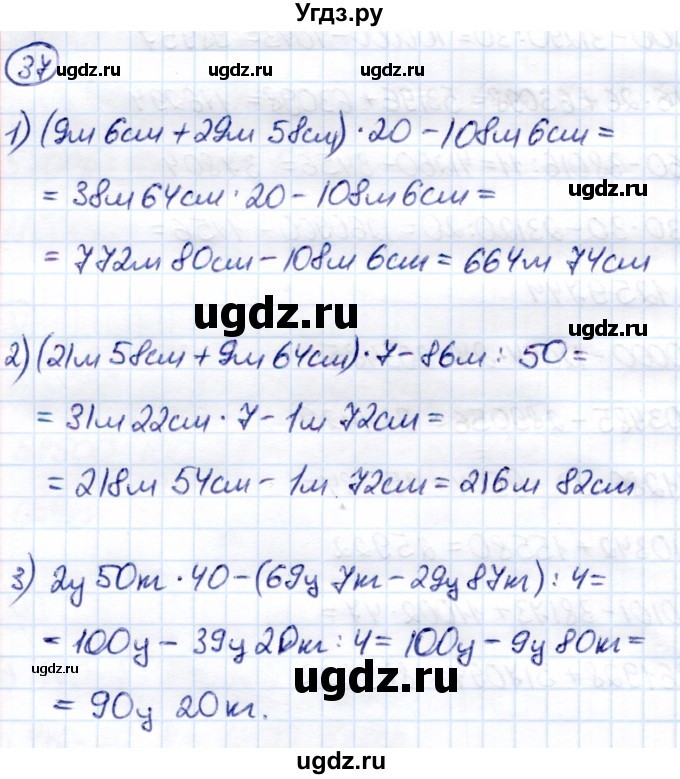 Угдз.ру
37
ugdz.ru ugdz.ru ugdz.ru ugdz.ru
1) (9м 6см + 29м 58см) · 20 - 108м 6см =
= 38м 64см · 20 - 108м 6см =
ugdz.ru
= 772м 80см - 108м 6см = 664м 74см
ugdz.ru
ugdz.ru
2) (21м 58см + 9м 64см) · 7 - 86м : 50 =
= 31м 22см · 7 - 1м 72см =
= 218м 54см - 1м 72см = 216м 82см
3) 2ц 50кг · 40 - (69ц 7кг - 29ц 87кг) : 4 =
= 100ц - 39ц 20кг : 4 = 100ц - 9ц 80кг =
ugdz.ru
ugdz.ru
= 90ц 20кг.
ugdz.ru
ugdz.ru
ugdz.ru